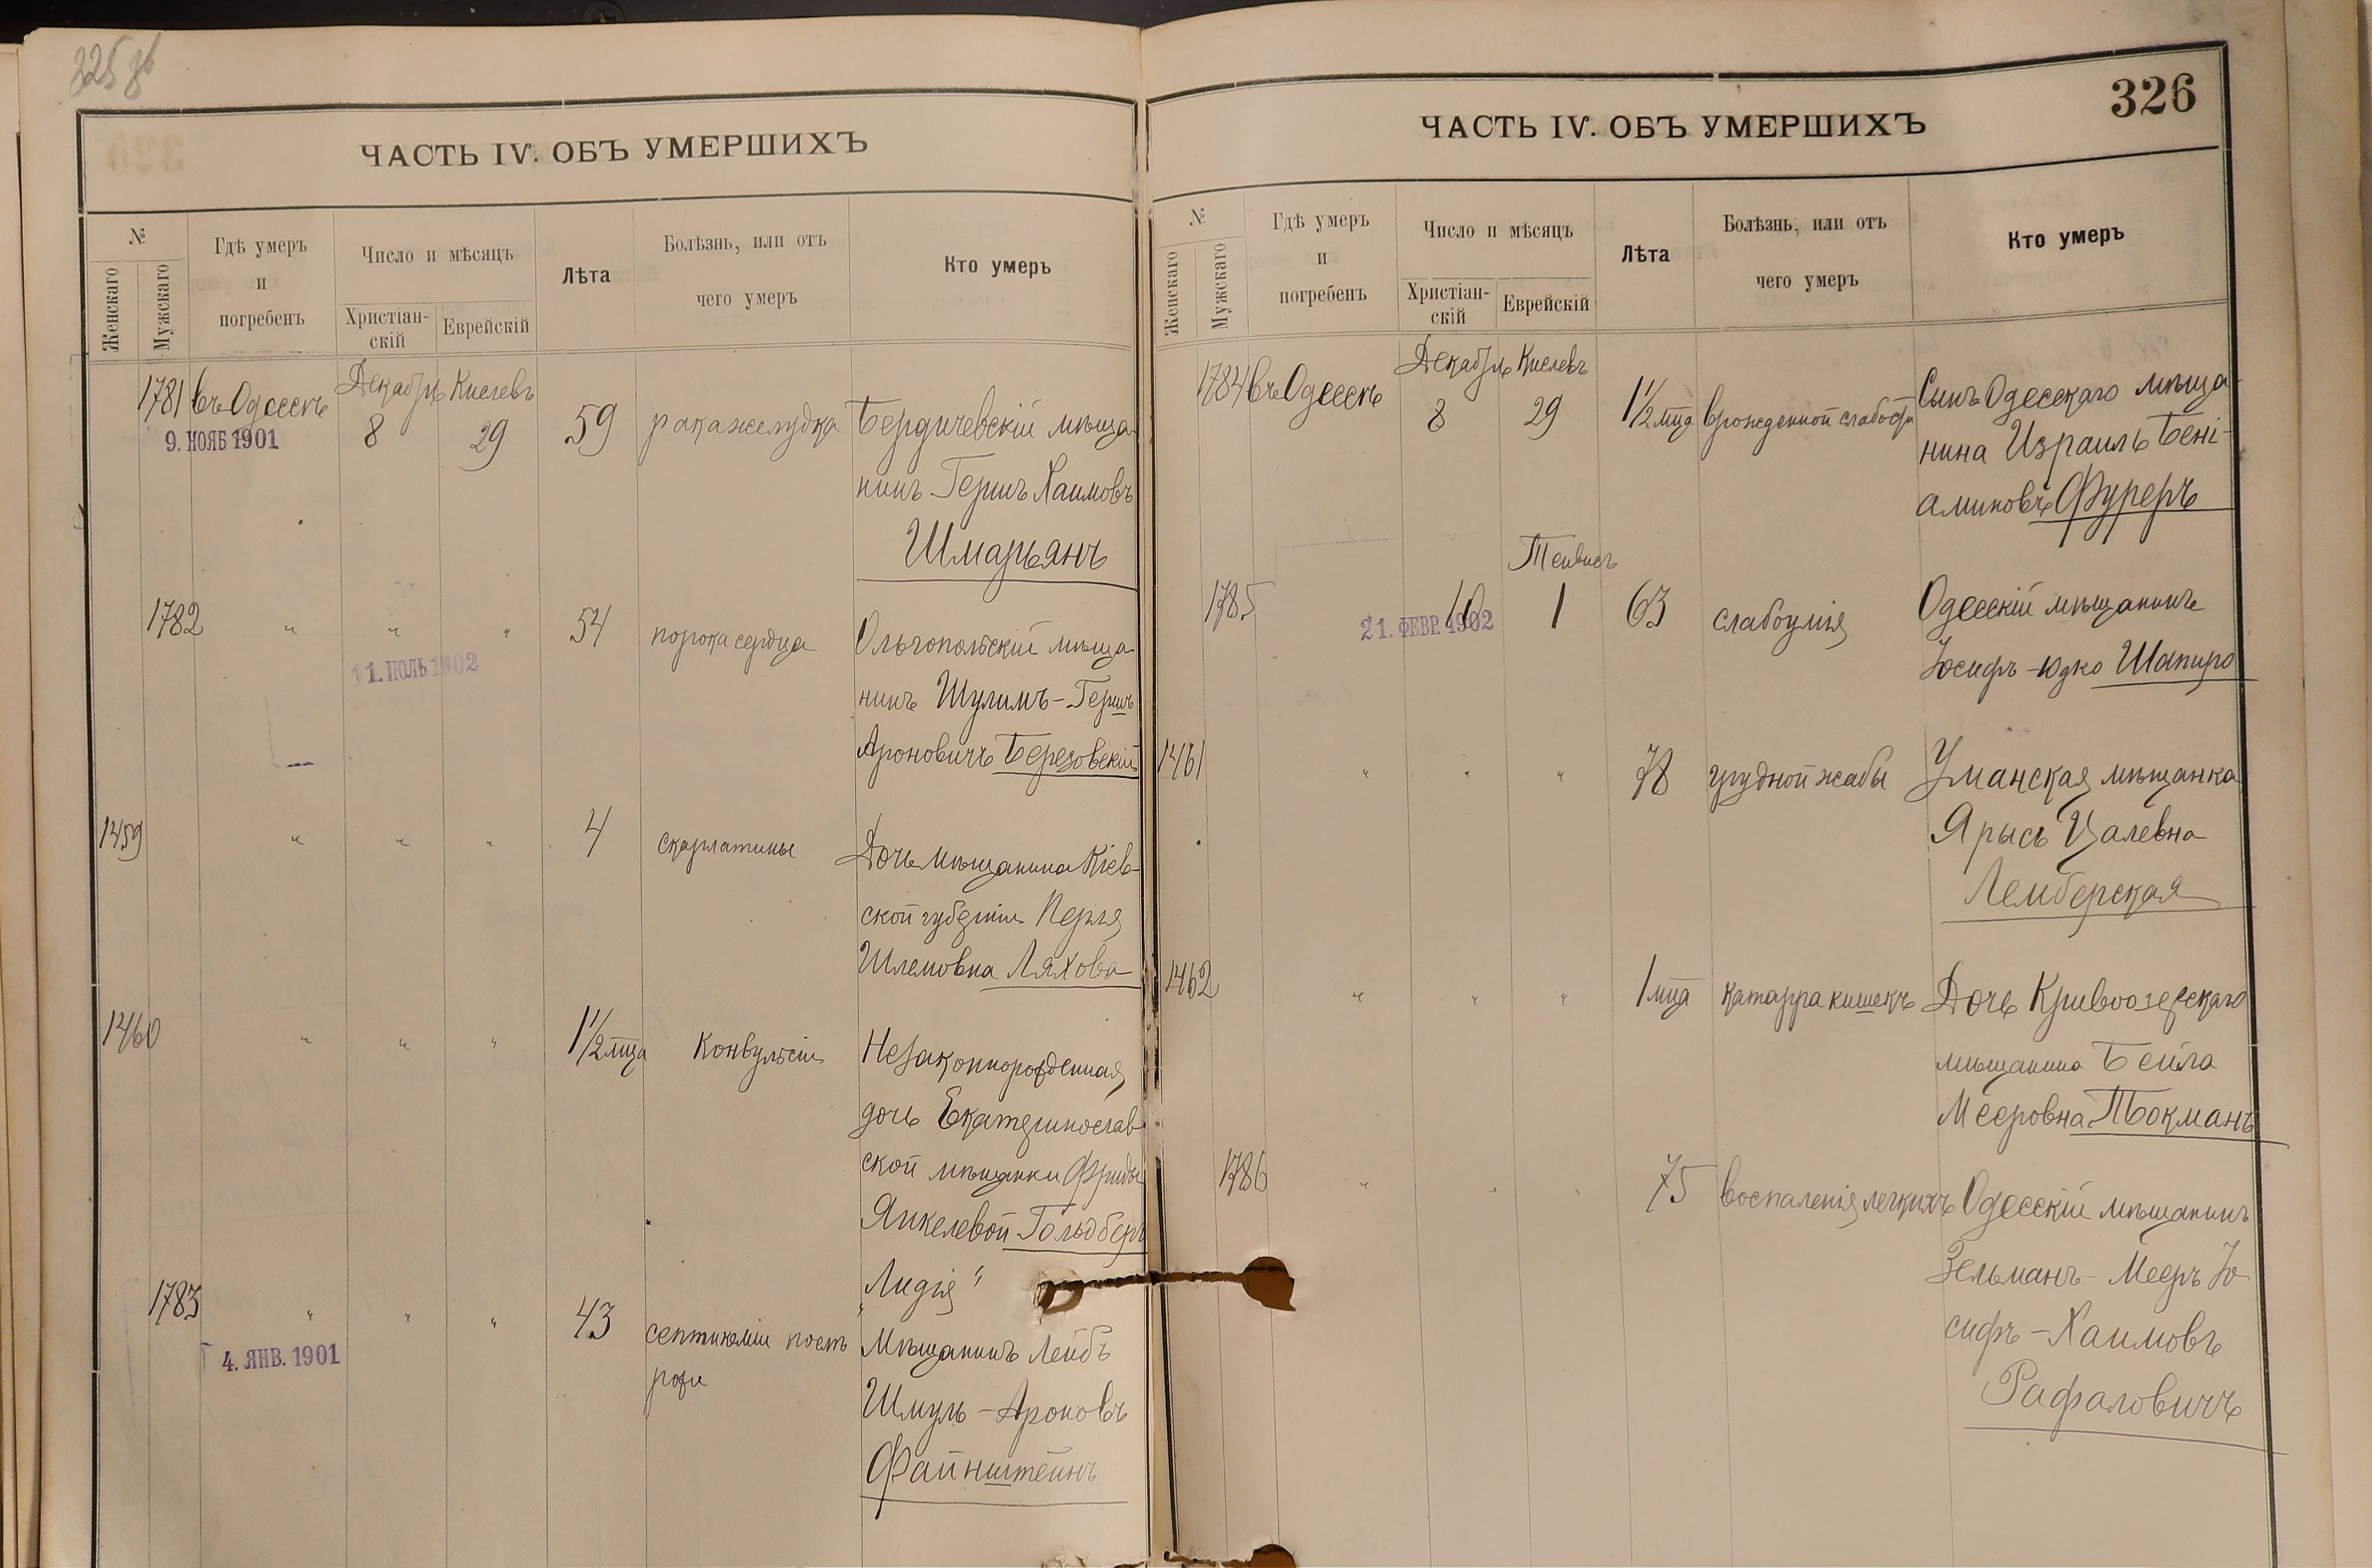 325 об
ЧАСТЬ IV. ОБЪ УМЕРШИХЪ
№
Женскаго
Мужскаго
Гдѣ умеръ
и
погребенъ
Число и мѣсяцъ
Христіан-
скій
Еврейскій
Лѣта
Болѣзнь, или отъ
чего умеръ
Кто умеръ
Декабрь Кислевъ
1781 въ Одессѣ 8 29 59 рака желудка Бердичевскій мѣща
9. НОЯБ 1901
нинъ Гершъ Хаимовъ
Шмарьянъ
1782 " " " 54 порока сердца Ольгопольскій мѣща
11. ІЮЛЬ 1902
нинъ Шулимъ-Гершъ
Ароновичъ Березовскій
1459 " " " 4 скарлатины Дочь мѣщанина Кіев-
ской губерніи Перля
Шлемовна Ляхова
1460 " " " 1 1/2 мца Конвульсіи Незаконнорожденная
дочь Екатеринослав
ской мѣщанки Фриды
Янкелевой Гольдбергъ
"Лидія"
1783 " " " 43 септикеміи послѣ Мѣщанинъ Лейбъ
4. ЯНВ. 1901
рожи
Шмуль-Ароновъ
Файнштейнъ
326
ЧАСТЬ IV. ОБЪ УМЕРШИХЪ
№
Женскаго
Мужскаго
Гдѣ умеръ
и
погребенъ
Число и мѣсяцъ
Христіан-
скій
Еврейскій
Лѣта
Болѣзнь, или отъ
чего умеръ
Кто умеръ
Декабрь Кислевъ
1784 въ Одессѣ 8 29 1 1/2 мца врожденной слабости Сынъ Одесскаго мѣща-
нина Израиль Бені-
аминовъ Фуреръ
Тейвисъ
1785 10 1 63 слабоумія Одесскій мѣщанинъ
21. ФЕВР. 1902
Іосифъ-Юдко Шапиро
1461 " " " 78 грудной жабы Уманская мѣщанка
Ярысь Цалевна
Лемберская
1462 " " " 1 мца катарра кишекъ Дочь Кривоозерскаго
мѣщанина Бейла
Мееровна Токманъ
1786 " " " 75 воспаленія легкихъ Одесскій мѣщанинъ
Зельманъ-Мееръ Іо
сифъ-Хаимовъ
Рафаловичъ